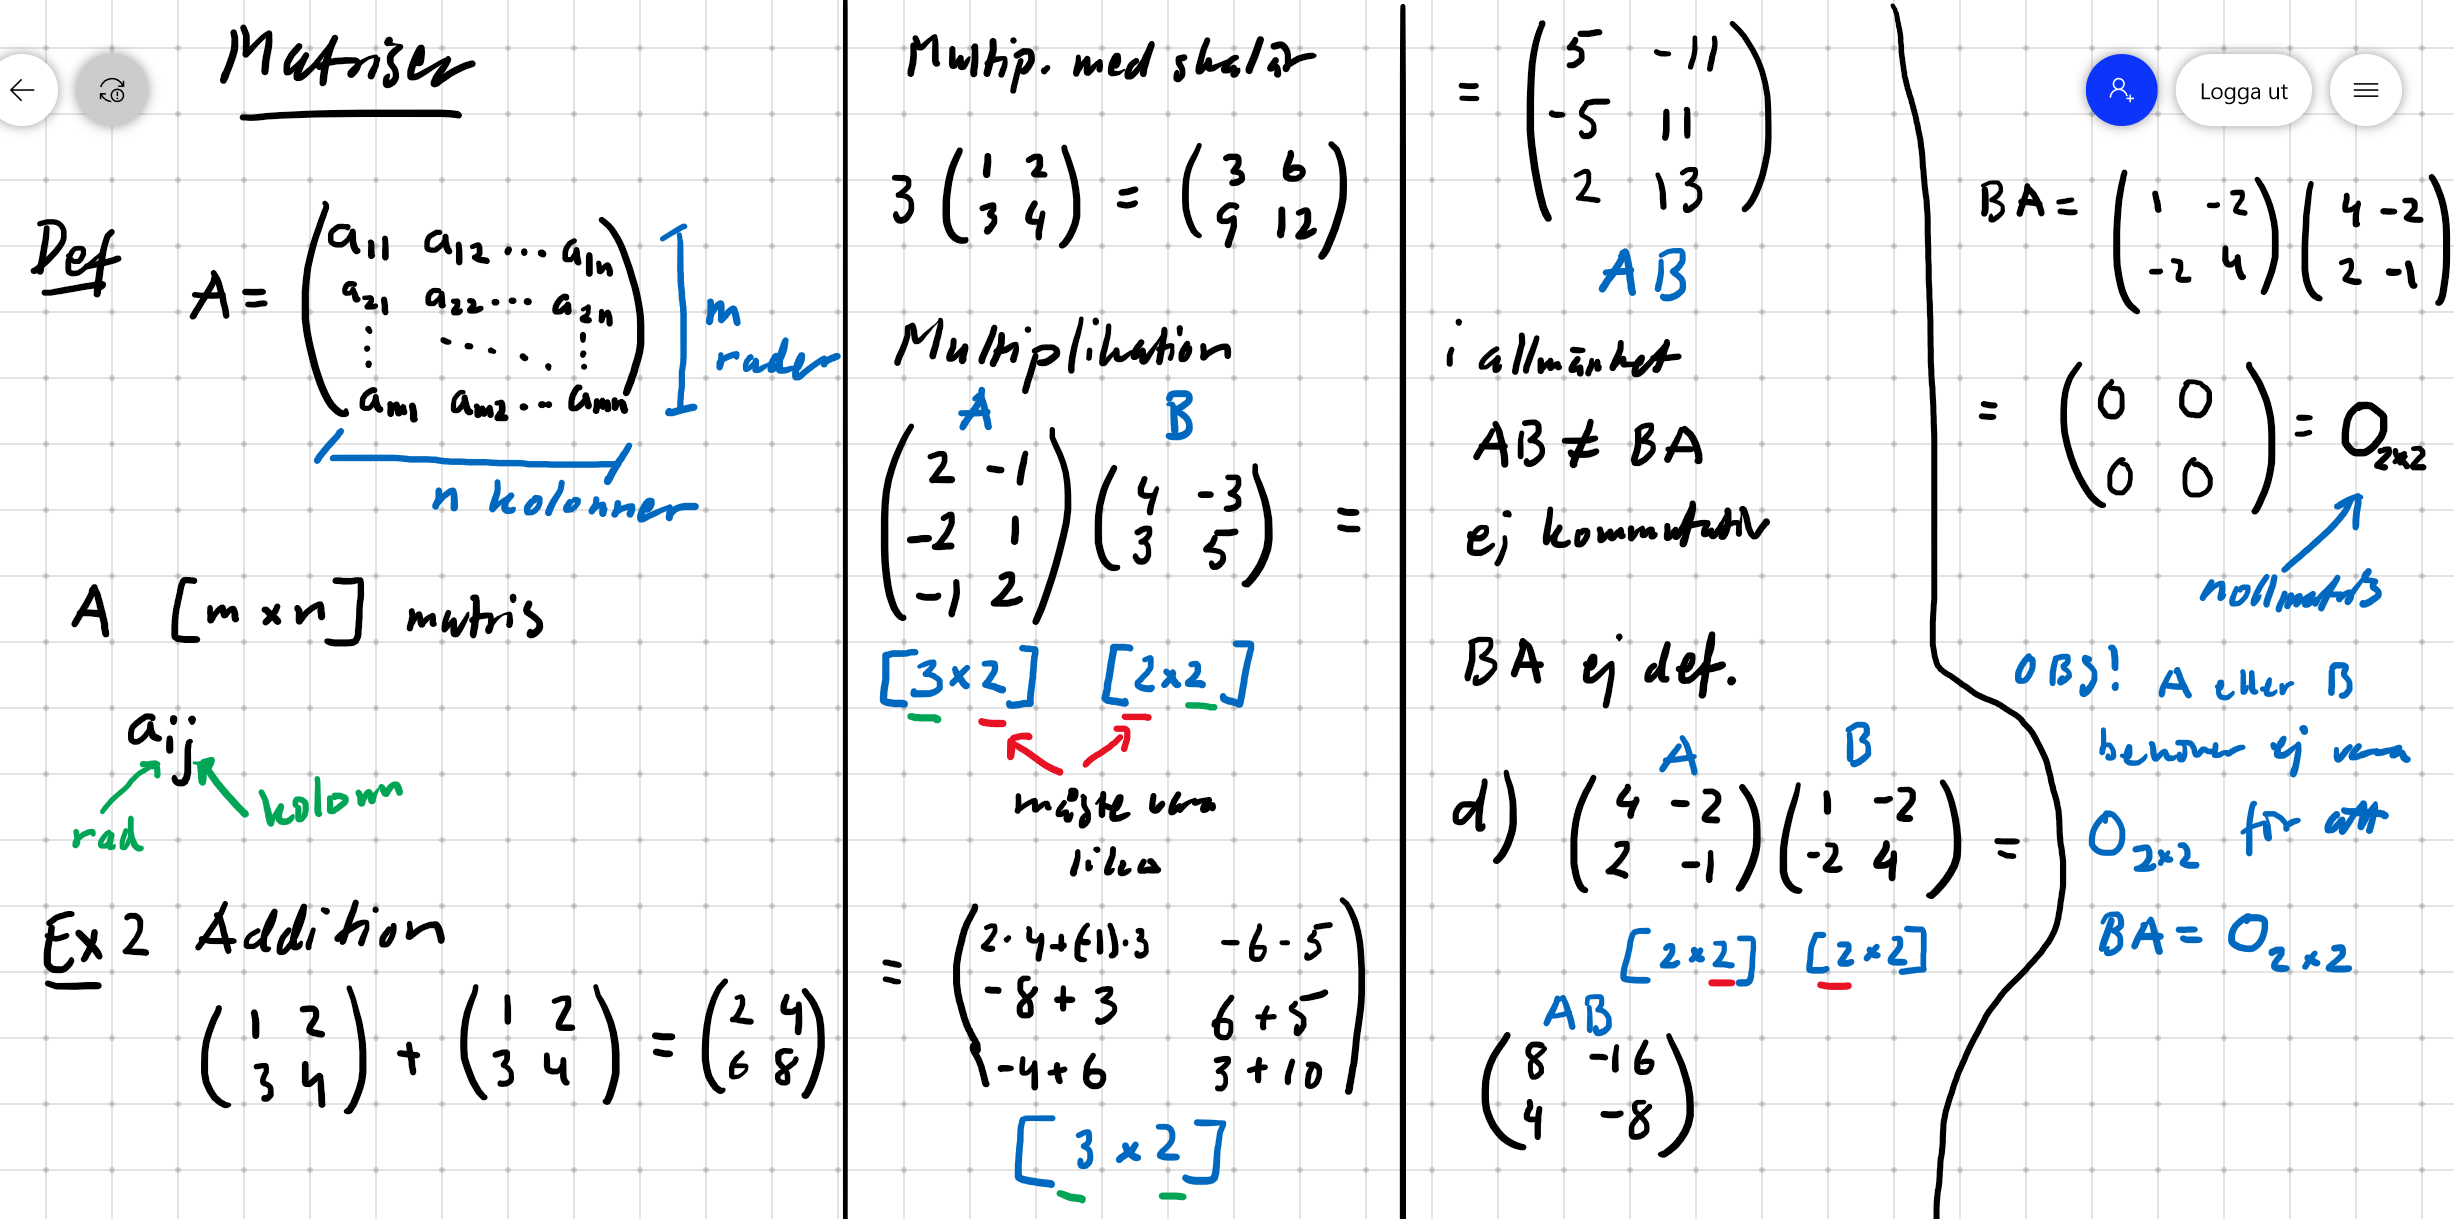 Matriser
Def
A = ( a11 a12 ... a1n
a21 a22 ... a2n
⋮ ..... ⋮
am1 am2 ... amn )
m
rader
n kolonner
A [m × n] matris
aij
rad
kolonn
Ex 2 Addition
( 1 2
3 4 ) + ( 1 2
3 4 ) = ( 2 4
6 8 )
Multip. med skalär
3 ( 1 2
3 4 ) = ( 3 6
9 12 )
Multiplikation
A B
( 2 -1
-2 1
-1 2 ) ( 4 -3
3 5 ) =
[3 × 2] [2 × 2]
måste vara
lika
= ( 2·4+(-1)·3 -6-5
-8+3 6+5
-4+6 3+10 )
[3 × 2]
= ( 5 -11
-5 11
2 13 )
AB
i allmänhet
AB ≠ BA
ej kommutativ
BA ej def.
A B
d) ( 4 -2
2 -1 ) ( 1 -2
-2 4 ) =
[2 × 2] [2 × 2]
AB
( 8 -16
4 -8 )
Logga ut
BA = ( 1 -2
-2 4 ) ( 4 -2
2 -1 )
= ( 0 0
0 0 ) = O2×2
nollmatris
OBS! A eller B
behöver ej vara
O2×2 för att
BA = O2×2